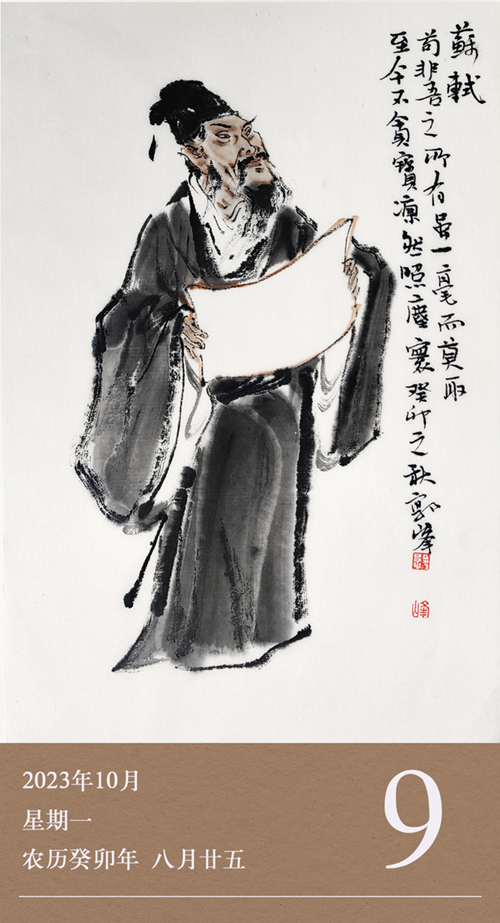 蘇軾
苟非吾之所有虽一毫而莫取
至今不貪寶凛然照塵寰癸卯之秋郭峰
峰
2023年10月
星期一
农历癸卯年 八月廿五
9